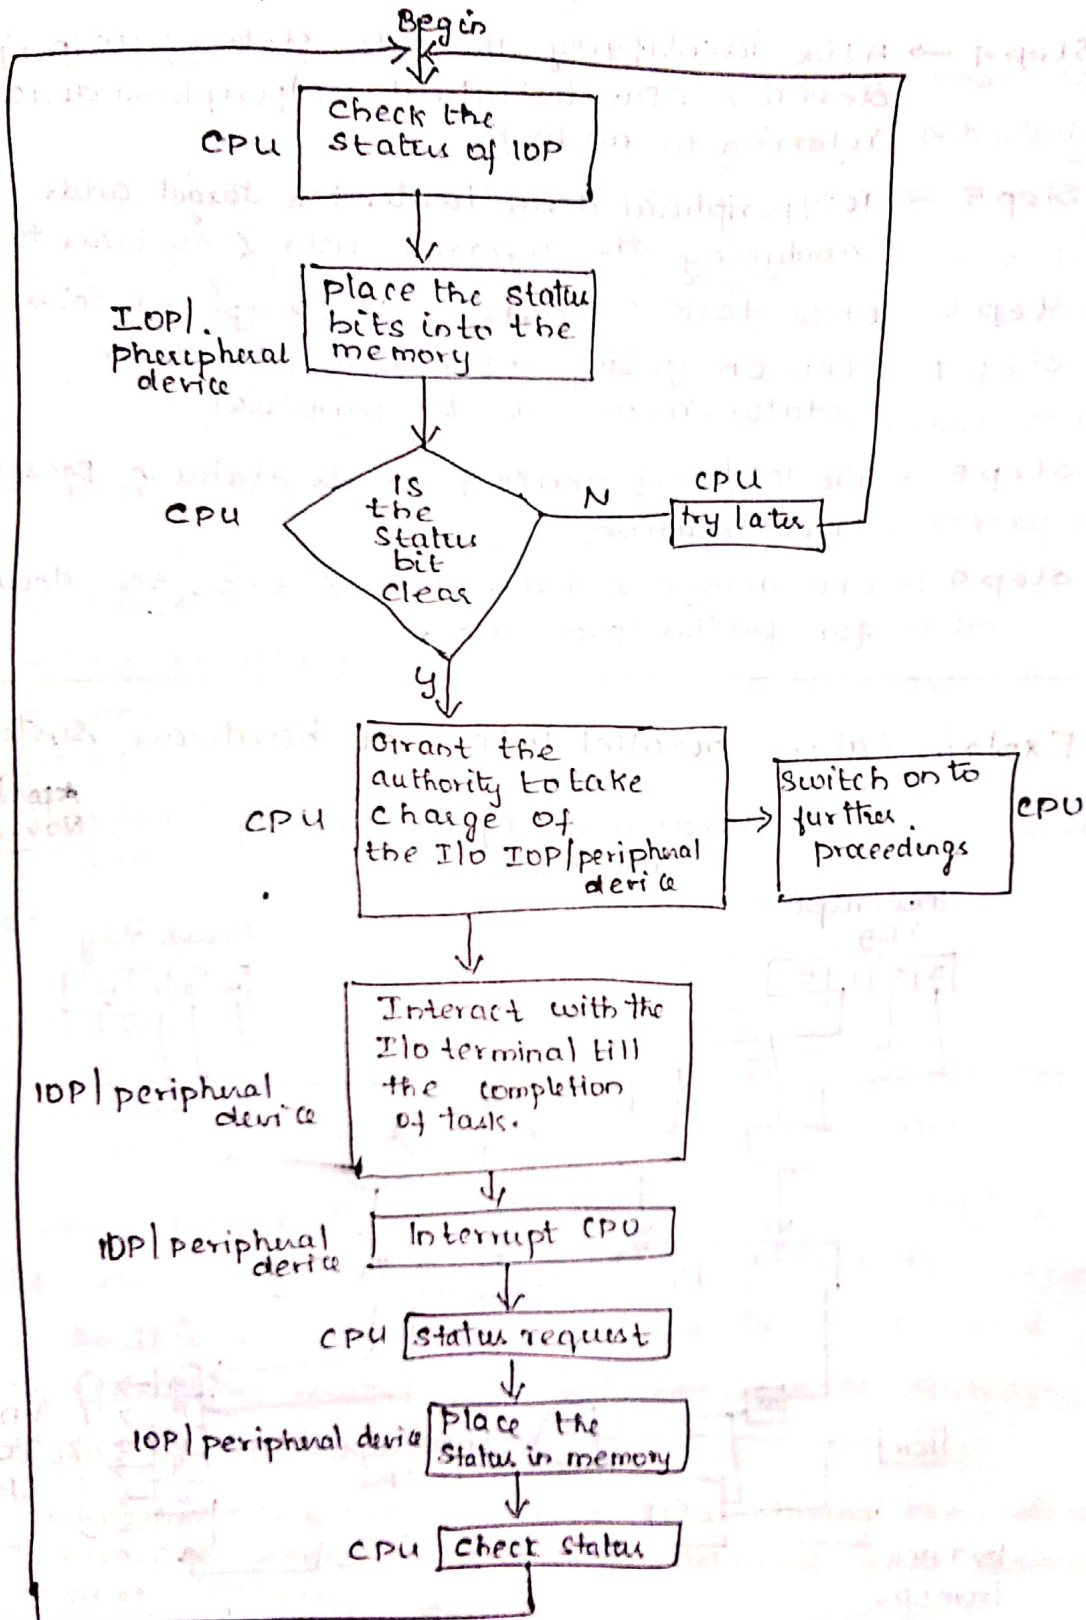 Begin
CPU
Check the
status of IOP
IOP/.
pheripheral
device
place the status
bits into the
memory
CPU
is
the
status
bit
clear
N
CPU
try later
Y
CPU
Grant the
authority to take
charge of
the I/O IOP/peripheral
device
switch on to
further
proceedings
CPU
IOP/peripheral
device
Interact with the
I/O terminal till
the completion
of task.
IOP/peripheral
device
Interrupt CPU
CPU
status request
IOP/peripheral device
Place the
status in memory
CPU
check status